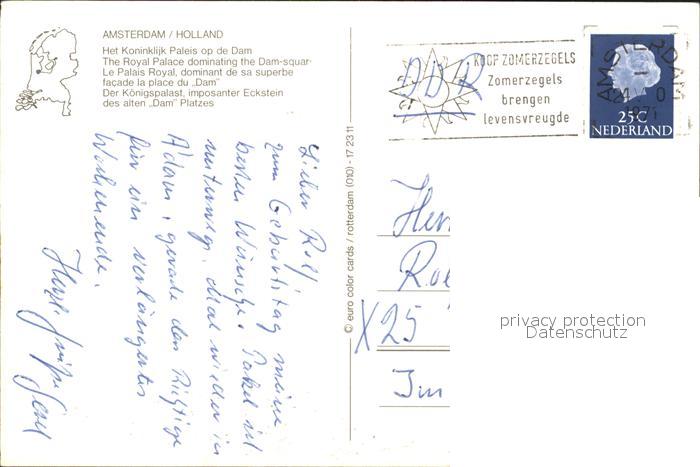 AMSTERDAM / HOLLAND
Het Koninklijk Paleis op de Dam
The Royal Palace dominating the Dam-squar-
Le Palais Royal, dominant de sa superbe
façade la place du „Dam"
Der Königspalast, imposanter Eckstein
des alten „Dam" Platzes
Lieber Rolf,
zum Geburtstag meine
besten Wünsche. Paket ist
unterwegs. Mal wieder in
A'dam, gerade das Richtige
für ein verlängertes
Wochenende.
Herzl. Grüße
© euro color cards / rotterdam (010) - 17 23 11
DDR
KOOP ZOMERZEGELS
Zomerzegels
brengen
levensvreugde
AMSTERDAM
1971
25C
NEDERLAND
Her
Rol
X25
privacy protection
Datenschutz